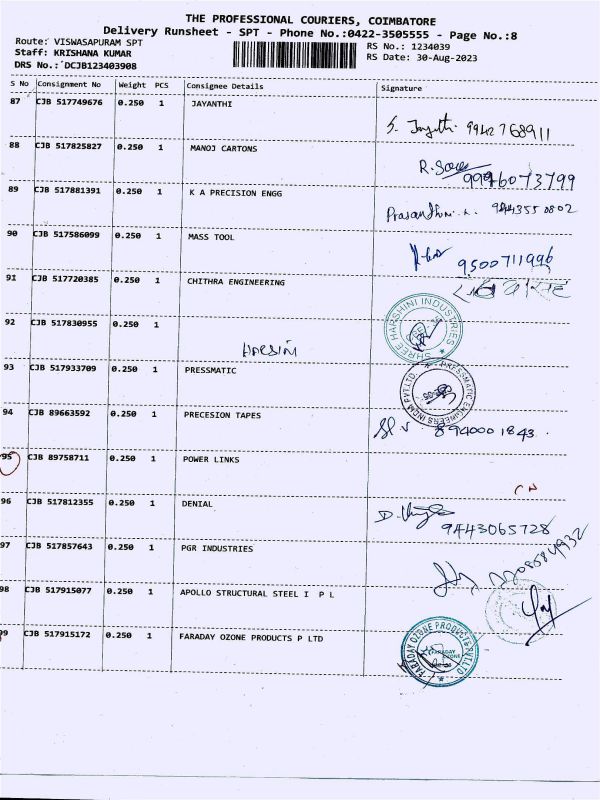 THE PROFESSIONAL COURIERS, COIMBATORE
Delivery Runsheet - SPT - Phone No.:0422-3505555 - Page No.:8
Route: VISWASAPURAM SPT
Staff: KRISHANA KUMAR
DRS No.: DCJB123403908
RS No.: 1234039
RS Date: 30-Aug-2023
S No Consignment No Weight PCS Consignee Details Signature
87 CJB 517749676 0.250 1 JAYANTHI
9942768911
88 CJB 517825827 0.250 1 MANOJ CARTONS
9976073799
89 CJB 517881391 0.250 1 K A PRECISION ENGG
944355 0802
90 CJB 517586099 0.250 1 MASS TOOL
9500711996
91 CJB 517720385 0.250 1 CHITHRA ENGINEERING
92 CJB 517830955 0.250 1
SHREE HARSHINI INDUSTRIES
93 CJB 517933709 0.250 1 PRESSMATIC
PRESSMATIC ENGINEERS INDIA PVT.LTD.
94 CJB 89663592 0.250 1 PRECESION TAPES
894000 1843
95 CJB 89758711 0.250 1 POWER LINKS
96 CJB 517812355 0.250 1 DENIAL
9443065728
97 CJB 517857643 0.250 1 PGR INDUSTRIES
98 CJB 517915077 0.250 1 APOLLO STRUCTURAL STEEL I P L
99 CJB 517915172 0.250 1 FARADAY OZONE PRODUCTS P LTD
FARADAY OZONE PRODUCTS PVT.LTD
FARADAY OZONE